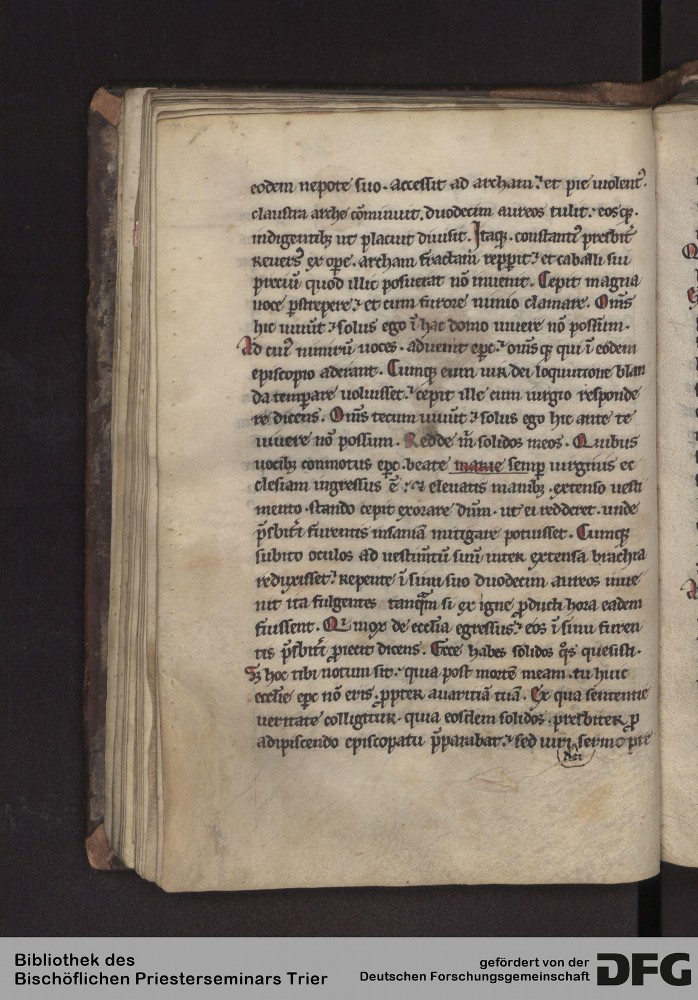 eodem nepote suo. accessit ad archam. et pie uiolent᷒.
claustra arche cōminuit. duodecim aureos tulit. eosqꝫ.
indigentibꝫ ut placuit diuisit. Itaqꝫ. constanti᷒ presbit̄
reuers᷒ ex oꝑe. archam fractam repꝑit. et caballi sui
preciū quod illic posuerat nō inuenit. Cepit magna
uoce ꝑstrepere. et cum furore nimio clamare. Om̄s
hic uiuūt ⁊ solus ego ī hac domo uiuere nō possum.
Ad cui᷒ nimirū uoces. aduenit epc̄. om̄sqꝫ qui ī eodem
episcopio aderant. Cumqꝫ eum uir dei loquutione blan
da temꝑare uoluisset. cepit ille cum iurgio responde
re dicens. Om̄s tecum uiuūt ⁊ solus ego hic ante te
uiuere nō possum. Redde m̄ solidos meos. Quibus
uocibꝫ conmotus epc̄. beate marie semꝑ uirginis ec
clesiam ingressus ē. et eleuatis manibꝫ. extenso uesti
mento. stando cepit exorare dn̄m. ut ei redderet. unde
p̄sbit̄i furentis insaniā mitigare potuisset. Cumqꝫ
subito oculos ad uestim̄tū suū inter extensa brachia
reduxisset. Repente ī sinu suo duodecim aureos inue
nit ita fulgentes tanqͣm si ex igne ꝓducti hora eadem
fuissent. Qi mox de ecclesia egressus. eos ī sinu furen
tis p̄sbit̄i ꝓiecit dicens. Ecce habes solidos qͦs quesisti.
Sꝫ hoc tibi notum sit. quia post mortē meam. tu huic
ecclesie epc̄ nō eris. ꝓpter auaritiā tuā. Ex qua sententie
ueritate colligitur. quia eosdem solidos. presbiter ꝓ
adipiscendo episcopatu p̄parabat. sed uiri sermo pre
dei
Bibliothek des
Bischöflichen Priesterseminars Trier
gefördert von der
Deutschen Forschungsgemeinschaft
DFG